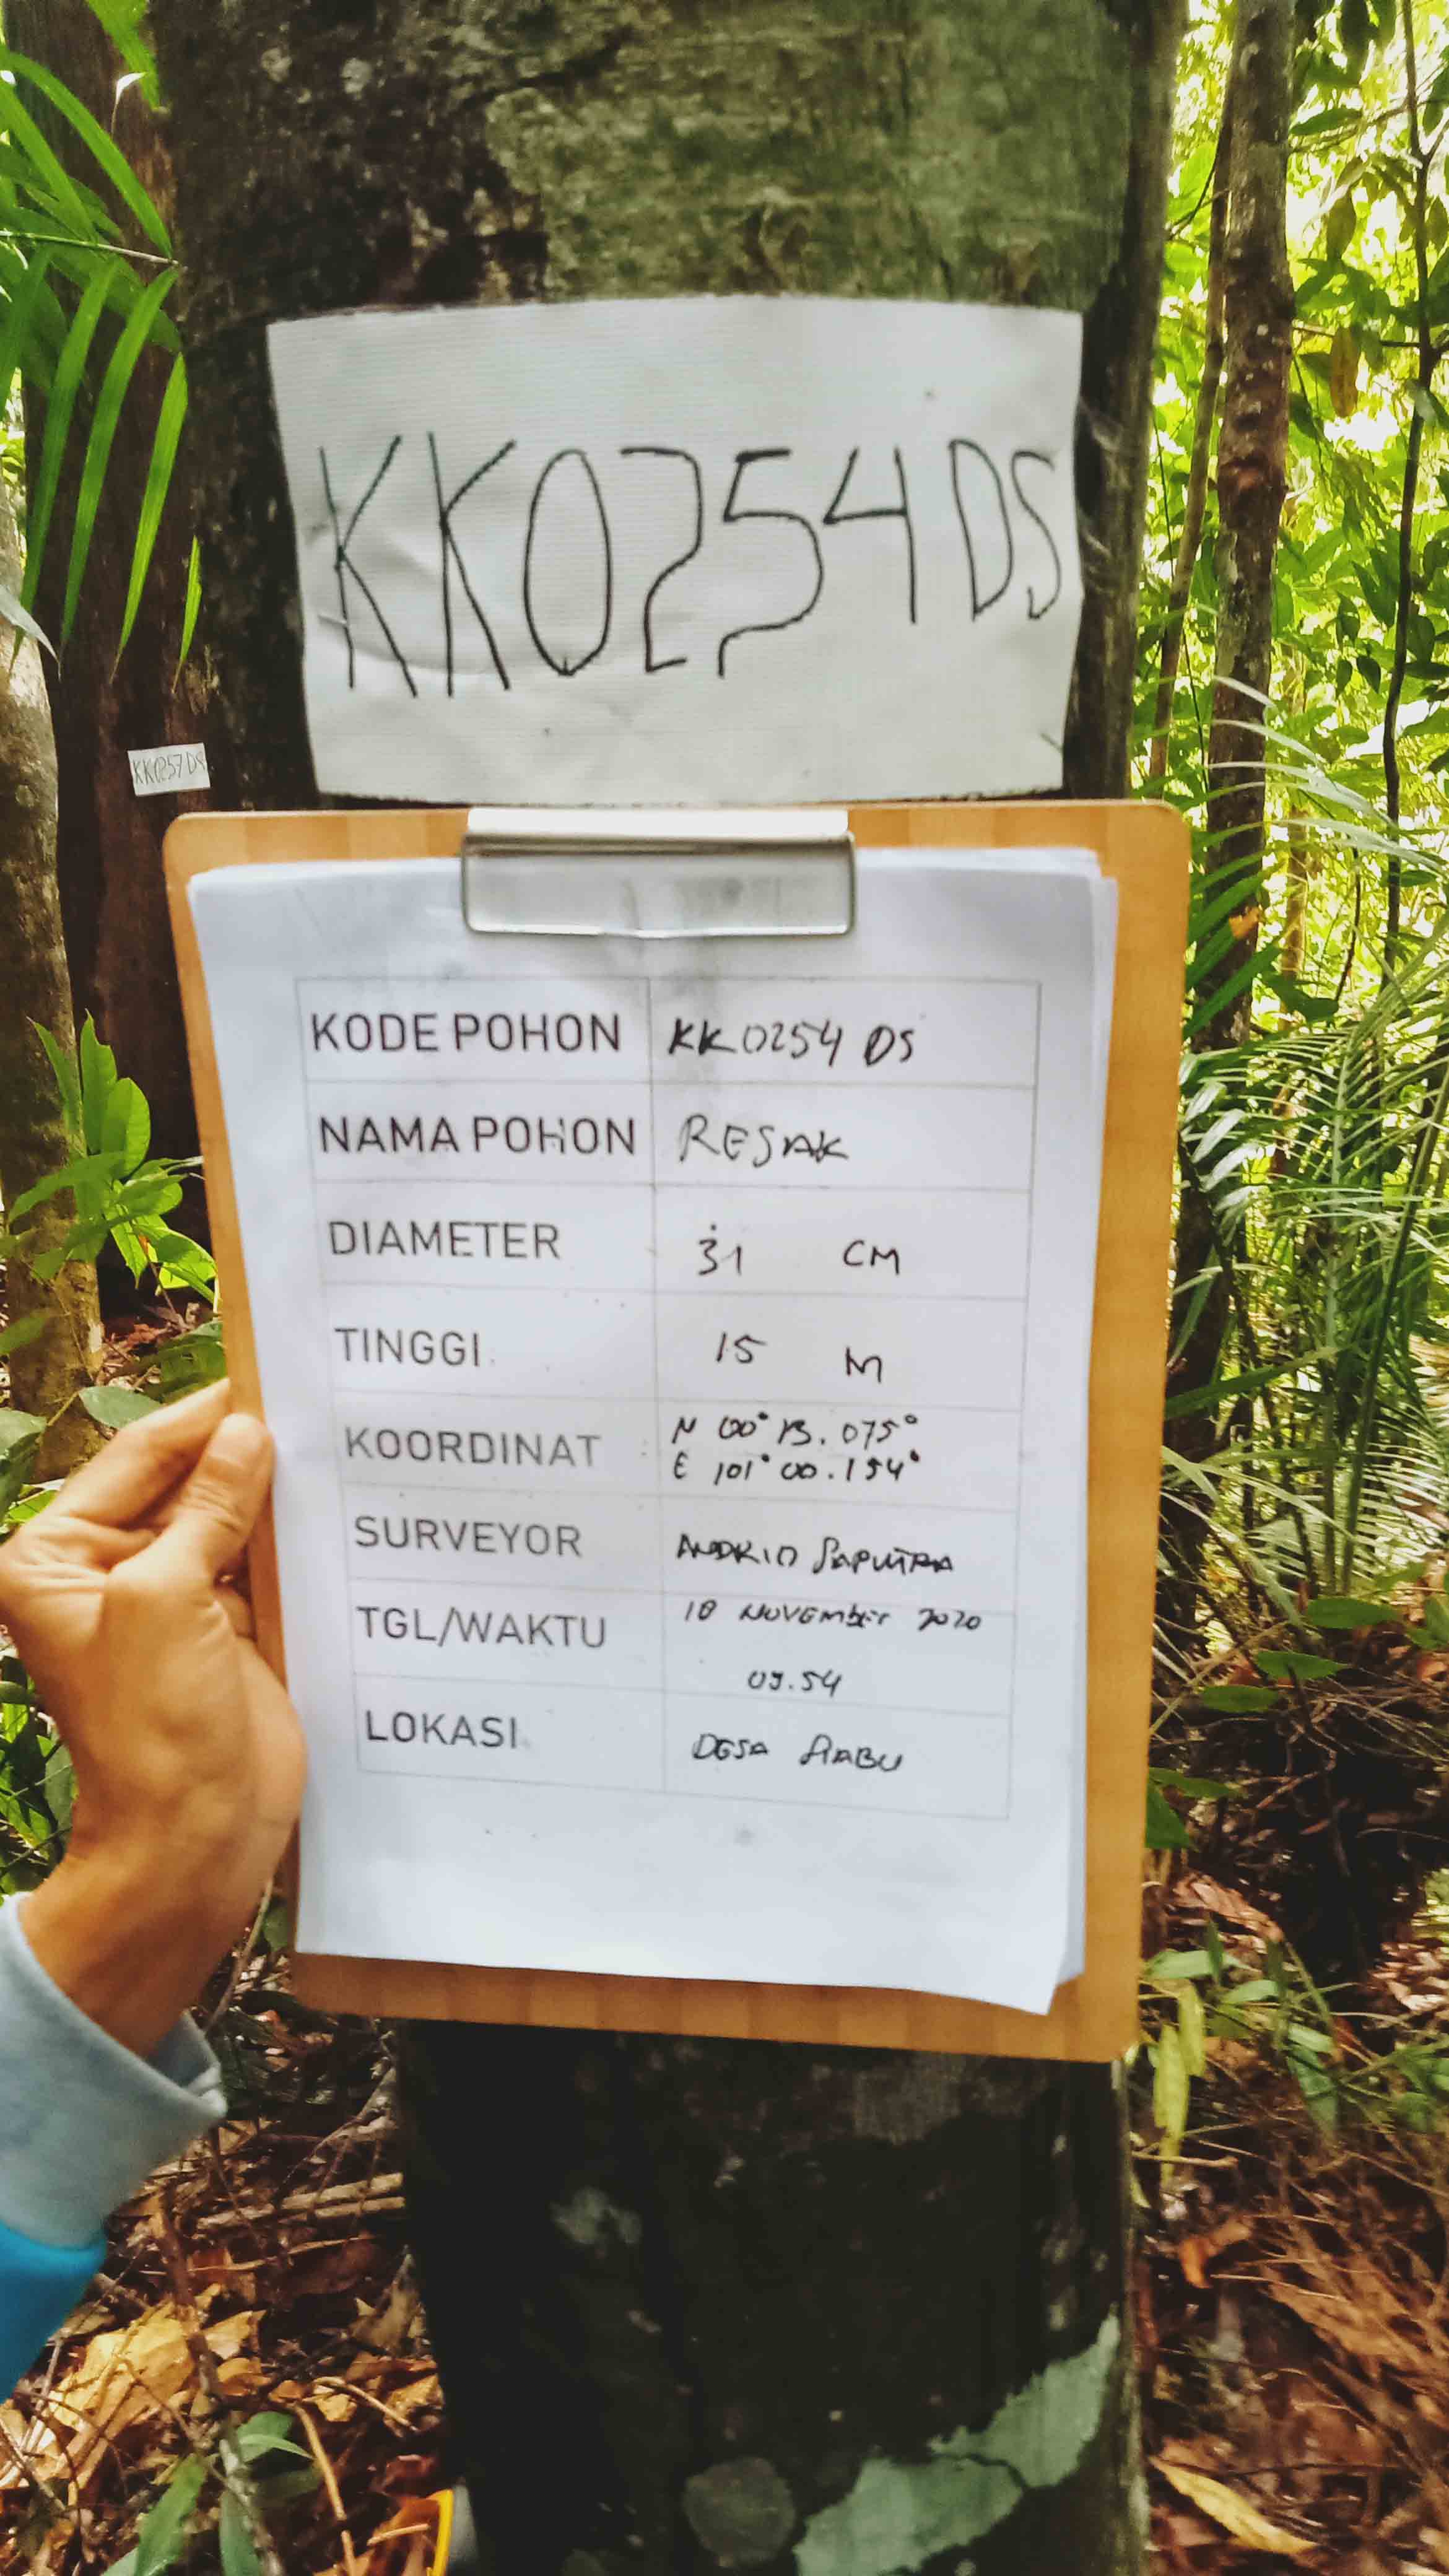 KK0254DS
KK0257DS
KODE POHON KK0254 DS
NAMA POHON RESAK
DIAMETER 31 CM
TINGGI 15 M
KOORDINAT : N 00° 13.075°
E 101° 00.154°
SURVEYOR ANDRIO SAPUTRA
TGL/WAKTU 18 NOVEMBER 2020
09.54
LOKASI DESA SIABU